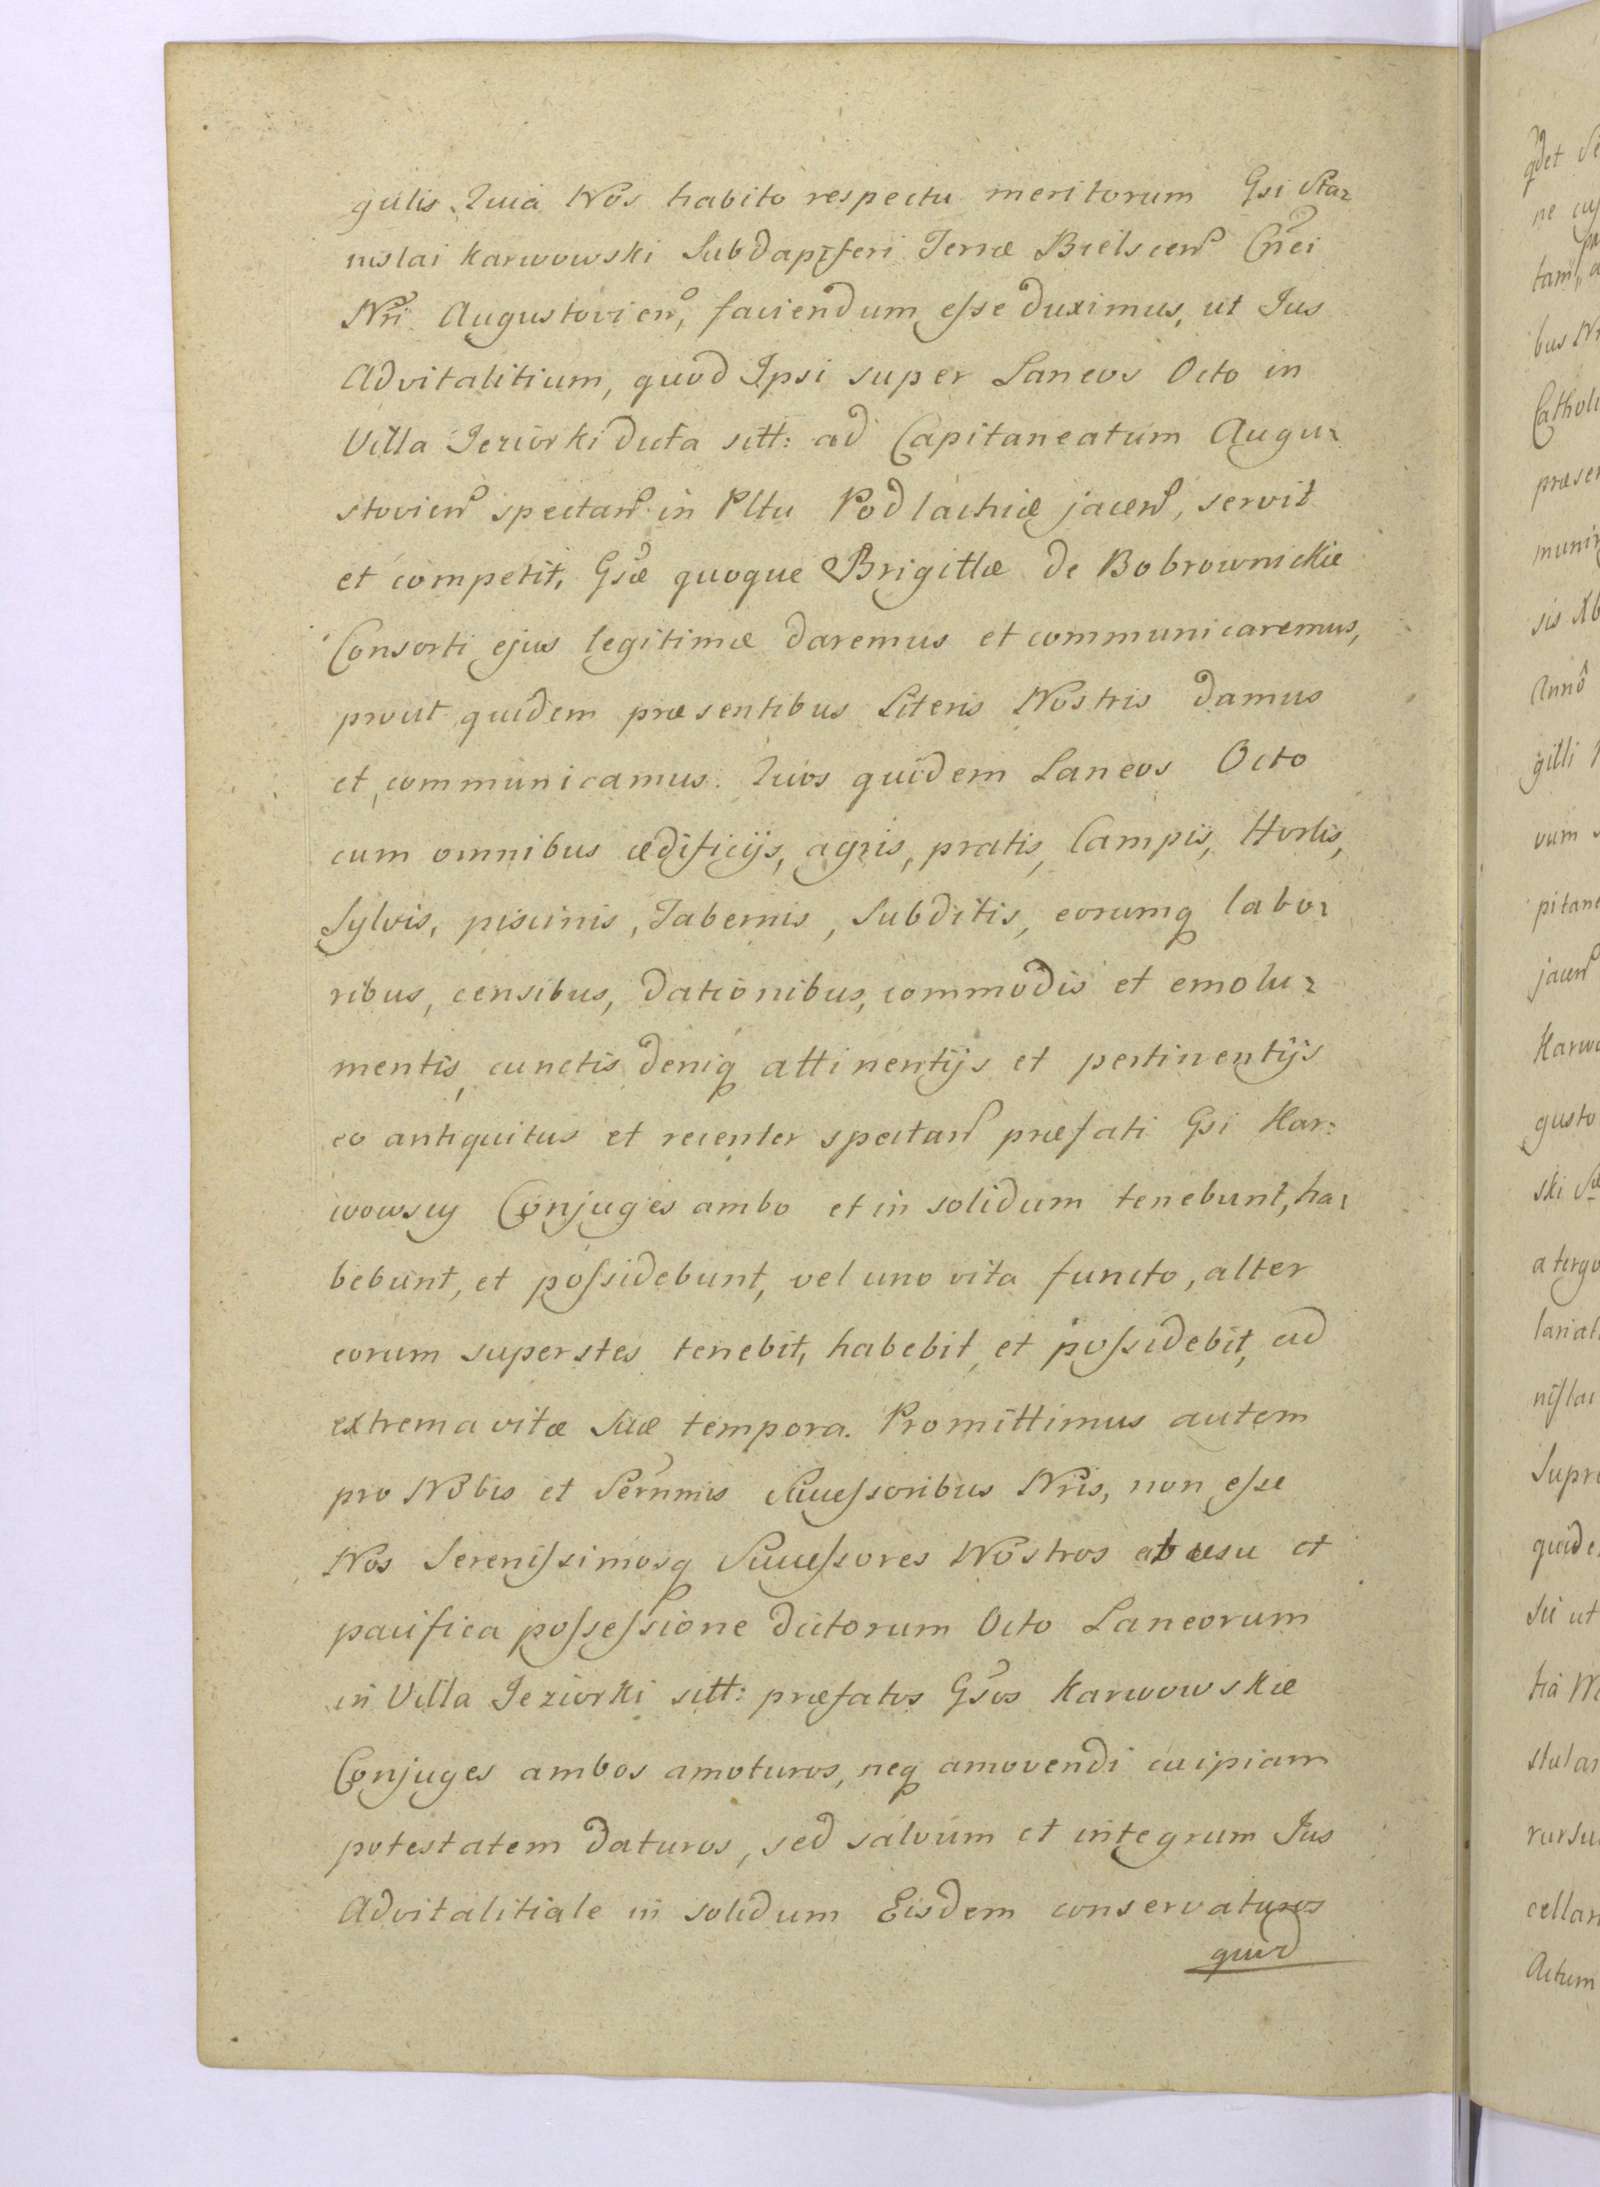 gulis. Quia Nos habito respectu meritorum Gsi Sta-
nislai Karwowski Subdapiferi Terræ Bielscen Cnei
Nri Augustovien, faciendum esse duximus, ut Jus
Advitalitium, quod Ipsi super Laneos Octo in
Villa Jeziorki dicta sitt: ad Capitaneatum Augu-
stovien spectan in Pltu Podlachiæ jacen, servit
et competit, Gsæ quoque Brigittæ de Bobrownickie
Consorti ejus legitimæ daremus et communicaremus,
prout quidem præsentibus Literis Nostris damus
et communicamus. Quos quidem Laneos Octo
cum omnibus ædificijs, agris, pratis, Campis, Hortis,
Sylvis, piscinis, Tabernis, Subditis, eorumq labo-
ribus, censibus, dationibus, commodis et emolu-
mentis, cunctis deniq attinentijs et pertinentijs
eo antiquitus et recenter spectan præfati Gsi Kar:
wowscy Conjuges ambo et in solidum tenebunt, ha-
bebunt, et possidebunt, vel uno vita functo, alter
eorum superstes tenebit, habebit, et possidebit, ad
extrema vitæ suæ tempora. Promittimus autem
pro Nobis et Sernmis Successoribus Nris, non esse
Nos Serenissimosq Successores Nostros ab usu et
pacifica possessione dictorum Octo Laneorum
in Villa Jeziorki sitt: præfatos Gsos Karwowskie
Conjuges ambos amoturos, neq amovendi cuipiam
potestatem daturos, sed salvum et integrum Jus
Advitalitiale in solidum Eisdem conservaturos
quod